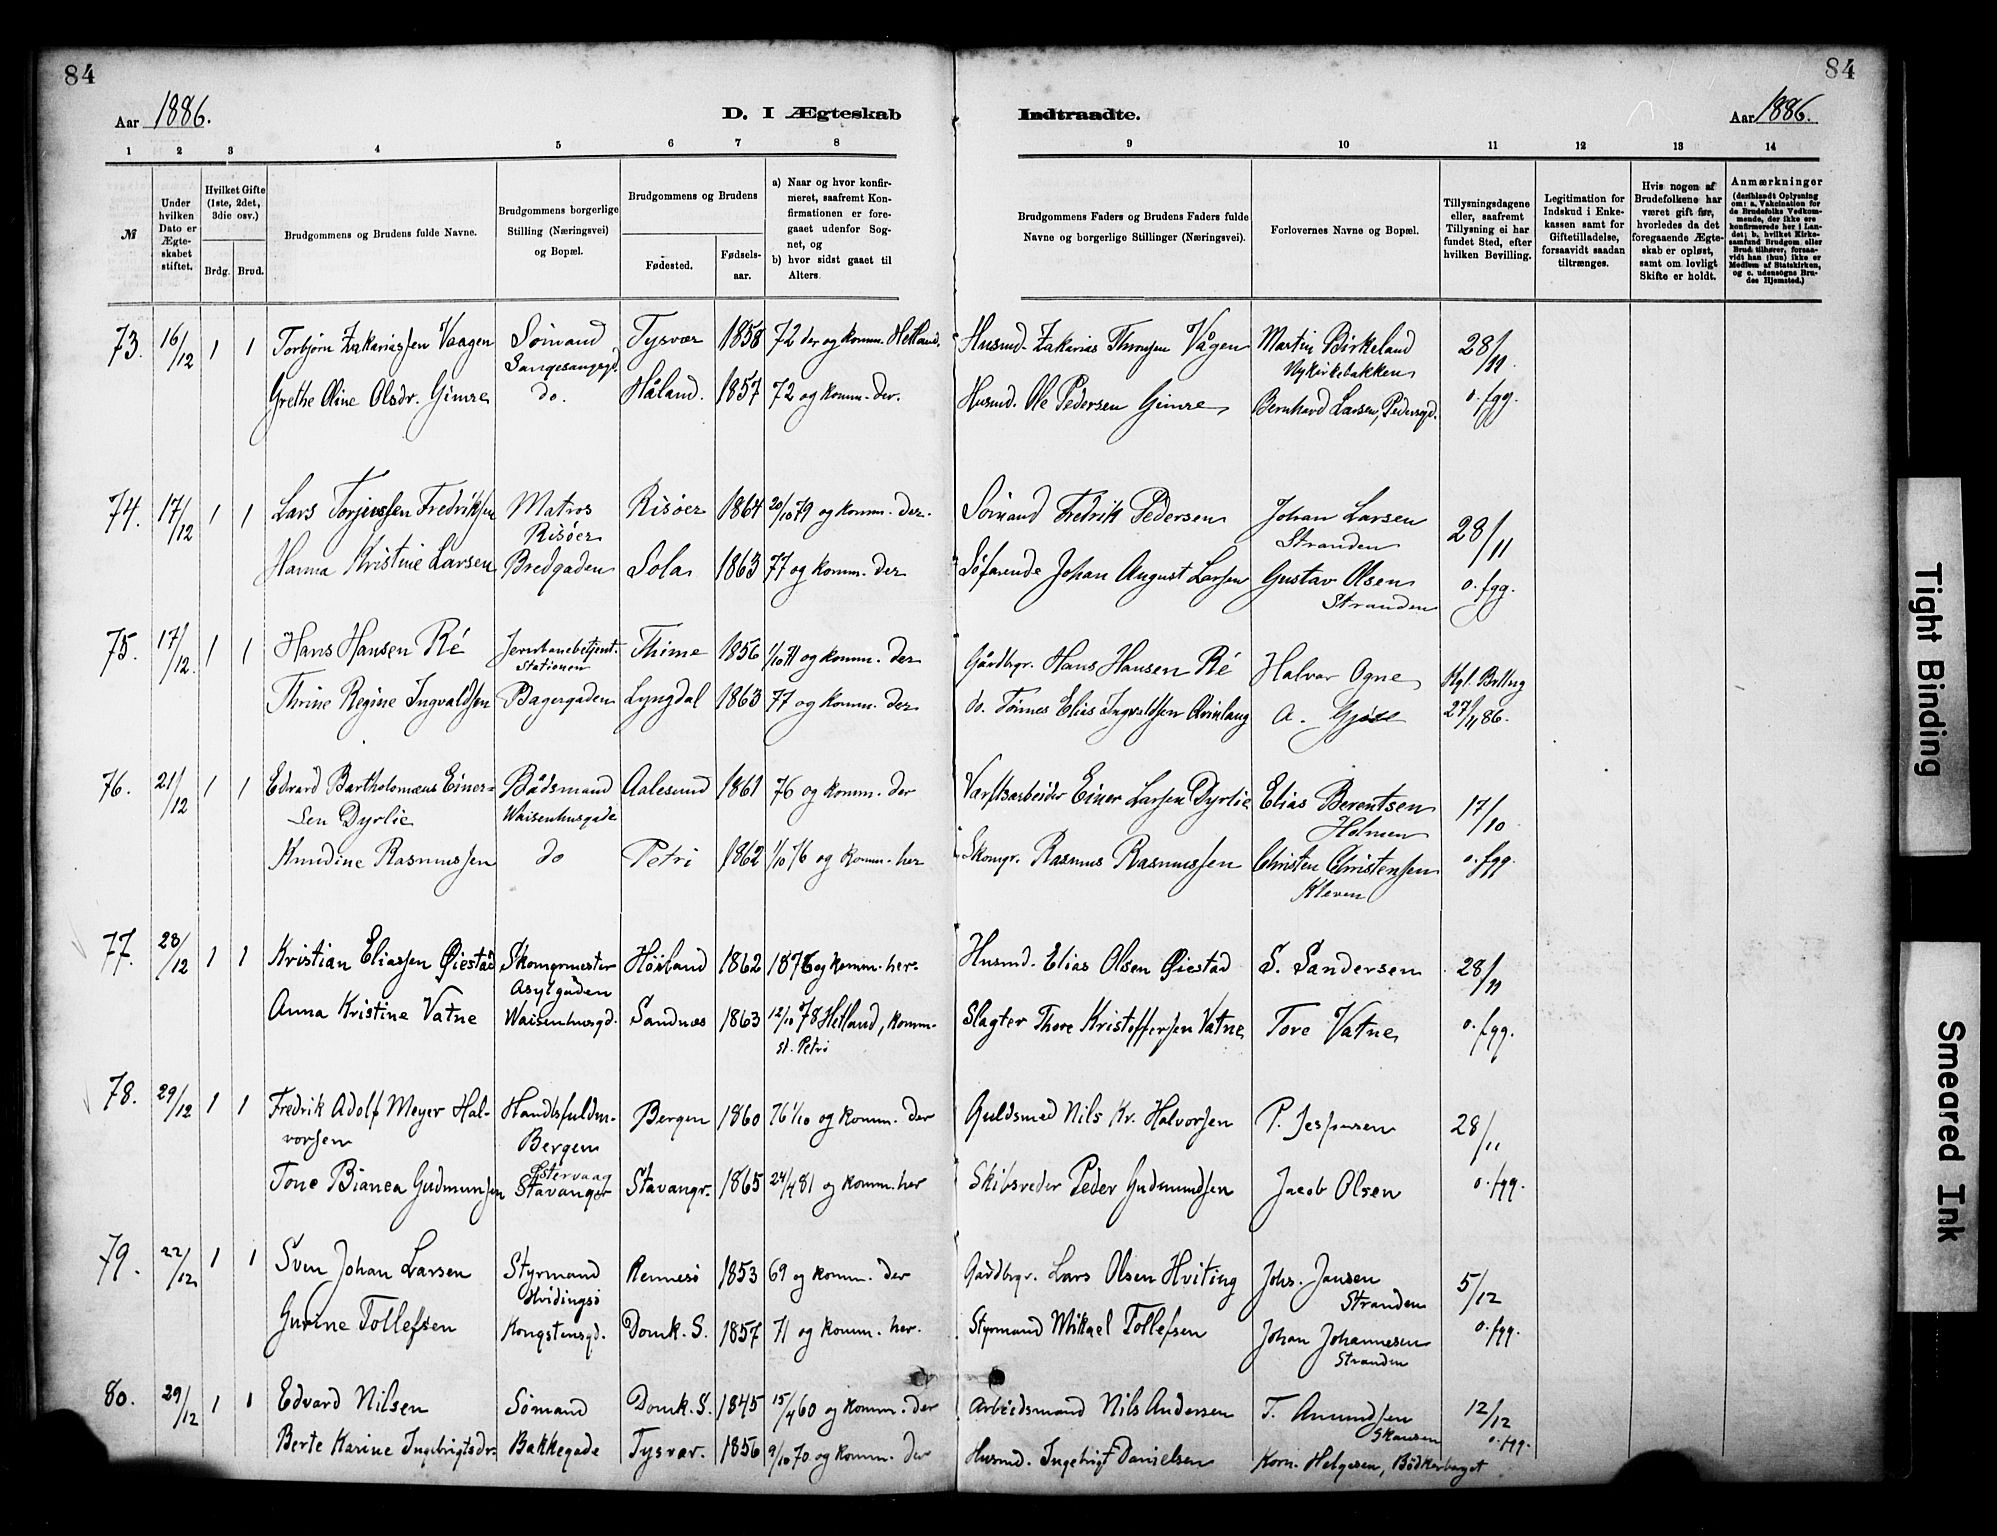 84
84
Aar 1886.
D. I Ægteskab
Indtraadte.
Aar 1886.
1 2 3 4 5 6 7 8 9 10 11 12 13 14
№
Under hvilken Dato er Ægteskabet stiftet.
Hvilket Gifte (1ste, 2det, 3die osv.)
Brdg. Brud.
Brudgommens og Brudens fulde Navne.
Brudgommens borgerlige Stilling (Næringsvei) og Bopæl.
Brudgommens og Brudens
Fødested.
Fødselsaar.
a) Naar og hvor konfirmeret, saafremt Konfirmationen er foregaaet udenfor Sognet, og
b) hvor sidst gaaet til Alters.
Brudgommens Faders og Brudens Faders fulde Navne og borgerlige Stillinger (Næringsvei).
Forlovernes Navne og Bopæl.
Tillysningsdagene eller, saafremt Tillysning ei har fundet Sted, efter hvilken Bevilling.
Legitimation for Indskud i Enkekassen samt for Giftetilladelse, forsaavidt saadan tiltrænges.
Hvis nogen af Brudefolkene har været gift før, hvorledes da det foregaaende Ægteskab er opløst, samt om lovligt Skifte er holdt.
Anmærkninger (deriblandt Oplysning om: a. Vakcination for de Brudefolks Vedkommende, der ikke ere konfirmerede her i Landet; b. hvilket Kirkesamfund Brudgom eller Brud tilhører, forsaavidt han (hun) ikke er Medlem af Statskirken, og c. udensogns Brudes Hjemsted.)
73. 16/12 1 1 Torbjørn Zakariassen Vaagen Sømand Tysvær 1858 72 der og komm. Hetland. Husmd. Zakarias Vågen Martin Birkeland 28/11
Nykirkebakken
Grethe Oline Olsdr. Gimre do. Håland. 1857 72 og komm. der. Husmd. Ole Pedersen Gimre Bernhard Larsen, Pedersgd. o. fgg.
74. 17/12 1 1 Lars Torjussen Fredriksen Matros Risöer 1864 20/10 79 og komm. der. Sömand Fredrik Pedersen Johan Larsen 28/11
Risöer Stranden
Hanna Kristine Larsen Bredgaden Sola 1863 77 og komm. der Söfarende Johan August Larsen Gustav Olsen o. fgg.
Stranden
75. 17/12. 1 1 Hans Hansen Ré Jernbanebetjent. Thime 1856 1/10 71 og komm. der Gårdbgr. Hans Hansen Ré Halvor Ogne Kgl. Bvllng
Stationen
Thrine Regine Ingvaldsen Bagergaden Lyngdal 1863 77 og komm. der do. Tönnes Elias Ingvaldsen A. 27/11 86.
76. 21/12 1 1 Edvard Bartholomæus Einer- Bådsmand Aalesund 1861 76 og komm. der Værftsarbeider Einer Larsen Dyrlie Elias Berentsen 17/10
sen Dyrlie Waisenhusgade Holmen
Knudine Rasmussen do Petri 1862 1/10 76 og komm. her Skomgr. Rasmus Rasmussen Christen Christensen o. fgg.
Kleven
77. 28/12 1 1 Kristian Eliassen Øiestad Skomgrmester Höiland 1862 1876 og komm. her. Husmd. Elias Olsen Øiestad S. Sandersen 28/11
Asylgåden
Anna Kristine Vatne Waisenhusgd. Sandnæs 1863 12/10 78 Hetland, komm. Slagter Thore Kristoffersen Vatne Tore Vatne o. fgg.
st. Petri
78. 29/12 1 1 Fredrik Adolf Meyer Hal- Handlsfuldm. Bergen 1860 76 1/10 og komm. der Guldsmed Nils Kr. Halvorsen P. Jespersen 28/11
vorsen Bergen
Østervaag
Tone Bianca Gudmunsen Stavanger Stavangr. 1865 24/4 81 og komm. her Skibsreder Peder Gudmundsen Jacob Olsen o. fgg.
79. 22/12 1 1 Sven Johan Larsen Styrmand Rennesö 1853 69 og komm. der Gårdbgr. Lars Olsen Hviting Johs. Jansen 5/12
Hvidingsö Stranden
Gurine Tollefsen Kongstensgd. Domk. S. 1857 71 og komm. her. Styrmand Mikael Tollefsen Johan Johannesen o. fgg.
Stranden
80. 29/12 1 1 Edvard Nilsen Sömand Domk. S. 1845 15/4 60 og komm. der Arbeidsmand Nils Andersen T. Amundsen 12/12
Skansen o. fgg.
Berte Karine Ingebrigtsdr. Bakkegade Tysvær. 1856 9/10 70. og komm. der Husmd. Ingebrigt Danielsen Korn. Helgesen, Bödkerbaget
Tight Binding
Smeared Ink